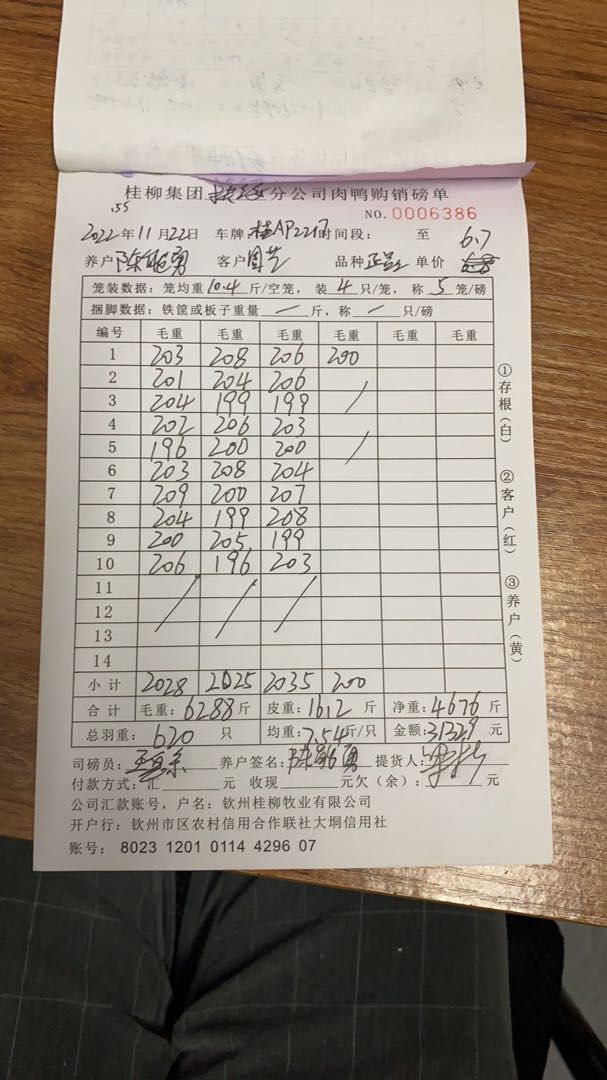 桂柳集团 分公司肉鸭购销磅单
55
NO.0006386
2022年11月22日 车牌:桂AP2217时间段: 至 6.7
养户 陈 勇 客户 周 品种 单价
笼装数据: 笼均重10.4斤/空笼, 装4只/笼, 称5笼/磅
捆脚数据: 铁筐或板子重量 — 斤, 称 / 只/磅
编号 毛重 毛重 毛重 毛重 毛重 毛重
1 203 208 206 200
2 201 204 206
3 204 199 199 /
4 202 206 203
5 196 200 200 /
6 203 208 204
7 209 200 207
8 204 199 208
9 200 205 199
10 206 196 203
11
12 / / /
13
14
小计 2028 2025 2035 200
合计 毛重:6288斤 皮重:1612斤 净重:4676斤
总羽重: 620 只 均重:7.54斤/只 金额:31329元
司磅员: 养户签名: 陈 勇 提货人:
付款方式:汇 元 收现 元欠(余): 元
公司汇款账号,户名:钦州桂柳牧业有限公司
开户行:钦州市区农村信用合作联社大垌信用社
账号: 8023 1201 0114 4296 07
①存根(白)
②客户(红)
③养户(黄)